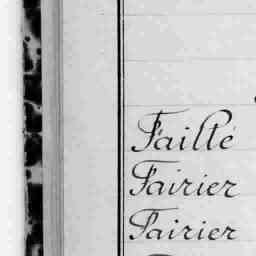 Faillé
Fairier
Fairier